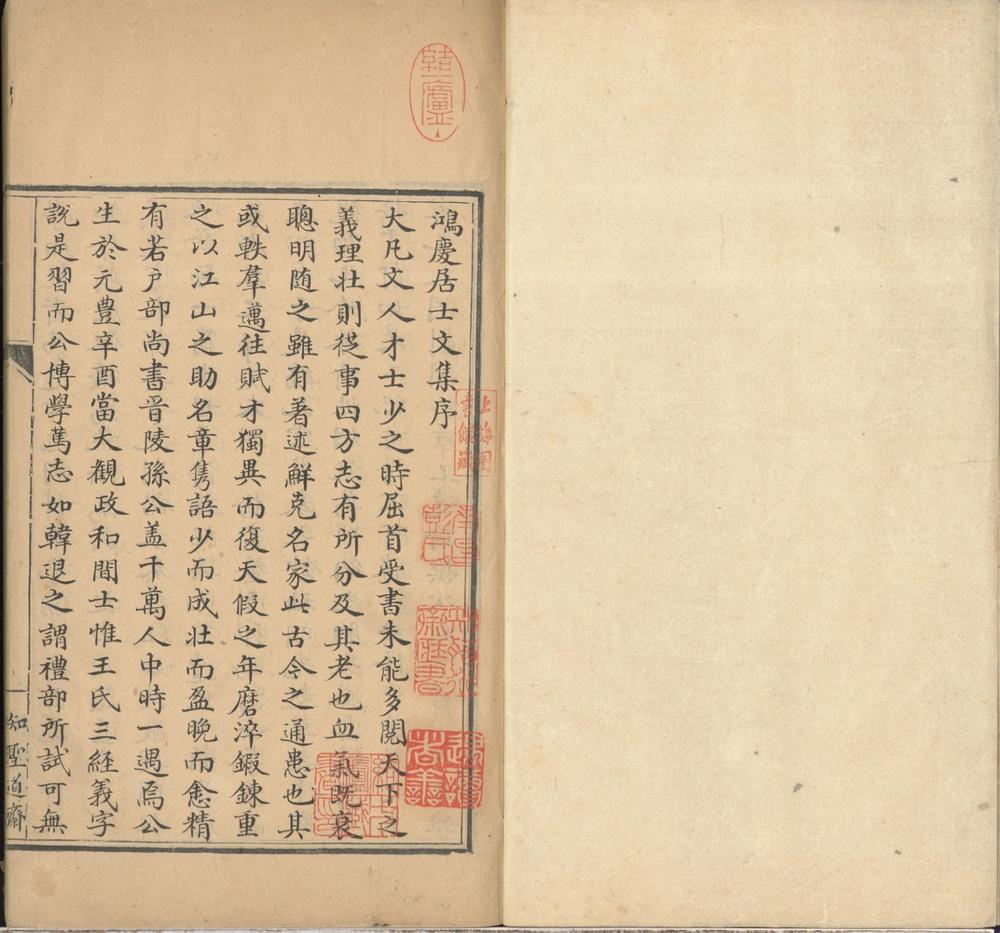 鴻慶居士文集序
大凡文人才士少之時屈首受書未能多閱天下之
義理壯則從事四方志有所分及其老也血氣既衰
聰明随之雖有著述鮮克名家此古今之通患也其
或軼羣邁往賦才獨異而復天假之年磨淬鍜鍊重
之以江山之助名章雋語少而成壯而盈晚而愈精
有若户部尚書晋陵孫公盖千萬人中時一遇焉公
生於元豊辛酉當大觀政和間士惟王氏三経義字
說是習而公博學篤志如韓退之謂禮部所試可無
知聖道齋
上海圖書館藏
南昌彭氏
知聖道齋藏書
遇讀者善
結一廬